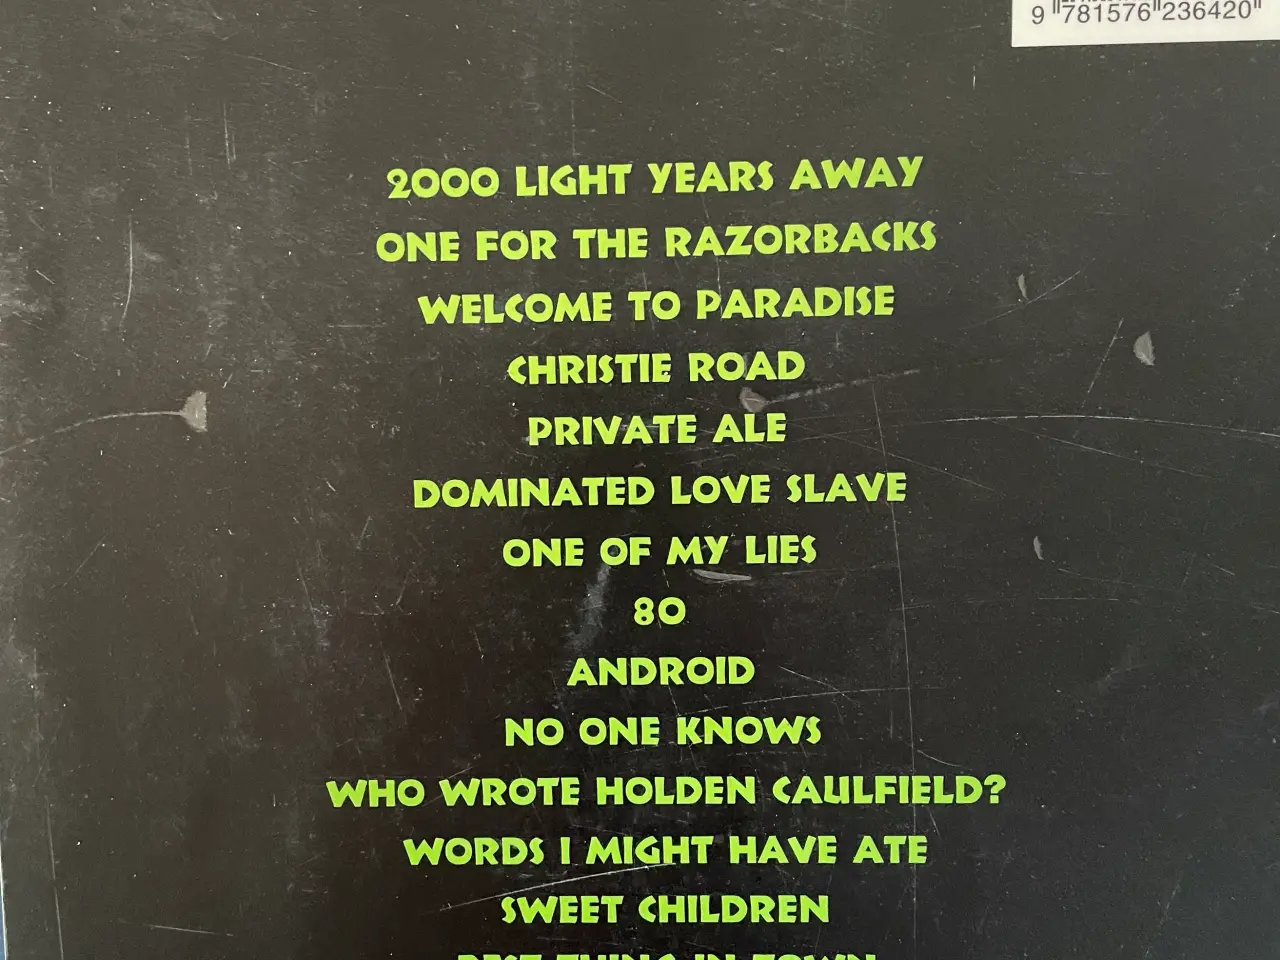 9 781576 236420
2000 LIGHT YEARS AWAY
ONE FOR THE RAZORBACKS
WELCOME TO PARADISE
CHRISTIE ROAD
PRIVATE ALE
DOMINATED LOVE SLAVE
ONE OF MY LIES
80
ANDROID
NO ONE KNOWS
WHO WROTE HOLDEN CAULFIELD?
WORDS I MIGHT HAVE ATE
SWEET CHILDREN
BEST THING IN TOWN